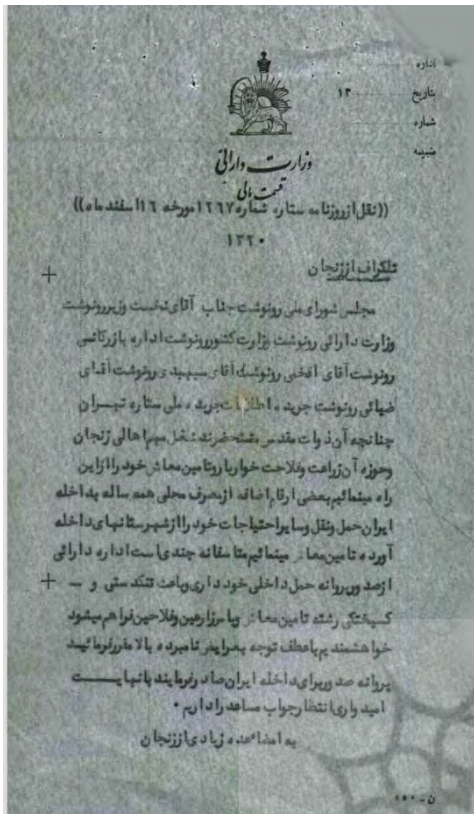 اداره
تاریخ ۱۳
شماره
ضمیمه
وزارت دارائی
قسمت مالی
((نقل از روزنامه ستاره شماره ۱۲۶۷ مورخه ۱۶ اسفند ماه))
۱۳۲۰
تلگراف از زنجان
مجلس شورای ملی رونوشت جناب آقای نخست وزیر رونوشت
وزارت دارائی رونوشت وزارت کشور رونوشت اداره بازرگانی
رونوشت آقای افخمی رونوشت آقای سپهبدی رونوشت آقای
ضیائی رونوشت جریده اطلاعات جریده ملی ستاره تهران
چنانچه آن ذوات مقدس مستحضرند شغل مهم اهالی زنجان
وحوزه آن زراعت و فلاحت خواربار و تامین معاش خود را از این
راه مینمائیم بعضی ارقام اضافه از مصرف محلی همه ساله بداخله
ایران حمل و نقل و سایر احتیاجات خود را از شهرستانهای داخله
آورده تامین معاش مینمائیم متاسفانه چندی است اداره دارائی
از صدور پروانه حمل داخلی خودداری و باعث تنگدستی و —
گسیختگی رشته تامین معاش و یاس زارعین و فلاحین فراهم میشود
خواهشمندیم با عطف توجه بمراتب نامبرده بالا مقرر فرمائید
پروانه صدور برای داخله ایران صادر فرمایند با نهایت
امیدواری انتظار جواب مساعد را داریم ۰
به امضا عده زیادی از زنجان
ن - ۱۵۰